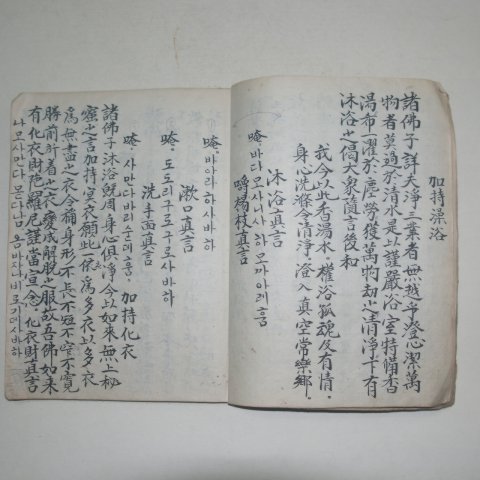 加持澡浴
諸佛子詳夫淨三業者無越乎澄心潔萬
物者莫過於清水是以謹嚴浴室特備香
湯希一濯於塵勞獲萬劫之清淨下有
沐浴之偈大衆隨言後和
我今以此香湯水。灌浴孤魂及有情。
身心洗滌令清淨。證入真空常樂鄉。
沐浴真言
唵 바다모사니사 하 모까아례훔
嚼楊枝真言
唵。바아라하사바하
漱口真言
唵 도도리구로구로사바하
洗手面真言
唵 사만다바리슌데훔。 加持化衣
諸佛子沐浴既周身心俱淨今以如來無上秘
蜜之言加持冥衣願此一衣爲多衣以多衣
爲無盡之衣令稱身形不長不短不窄不寬
勝前所着之衣變成解脫之服故吾佛如來
有化衣財陀羅尼謹當宣念。化衣財真言
나모사만다 못다남 옴바자나비로기데사바하